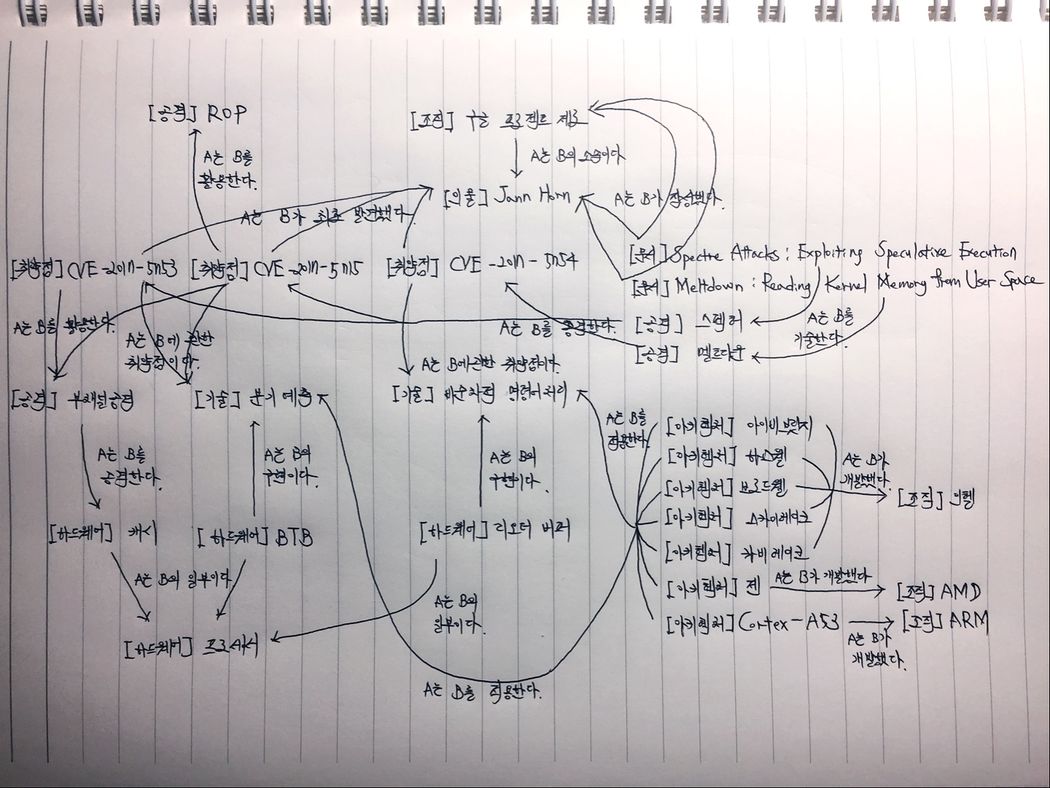 [공격] ROP
[조직] 구글 프로젝트 제로
A는 B를
활용한다.
A는 B의 소속이다
[인물] Jann Horn
A는 B가 작성했다.
A는 B가 최초 발견했다.
[취약점] CVE-2017-5753
[취약점] CVE-2017-5715
[취약점] CVE-2017-5754
[문서] Spectre Attacks: Exploiting Speculative Execution
[문서] Meltdown: Reading Kernel Memory from User Space
A는 B를 활용한다.
A는 B에 관한
취약점이다.
A는 B를 공격한다.
[공격] 스펙터
[공격] 멜트다운
A는 B를
기술한다.
A는 B에 관한 취약점이다.
[공격] 부채널공격
[기술] 분기 예측
[기술] 비순차적 명령어처리
A는 B를
공격한다.
A는 B의
구현이다.
A는 B의
구현이다.
A는 B를
적용한다.
[아키텍처] 아이비브릿지
[아키텍처] 하스웰
[아키텍처] 브로드웰
[아키텍처] 스카이레이크
[아키텍처] 카비레이크
A는 B가
개발했다.
[조직] 인텔
[하드웨어] 캐시
[하드웨어] BTB
[하드웨어] 리오더 버퍼
A는 B의 일부이다
[아키텍처] 젠
A는 B가 개발했다
[조직] AMD
A는 B의
일부이다.
[아키텍처] Cortex-A53
[조직] ARM
A는 B가
개발했다.
[하드웨어] 프로세서
A는 B를 적용한다.